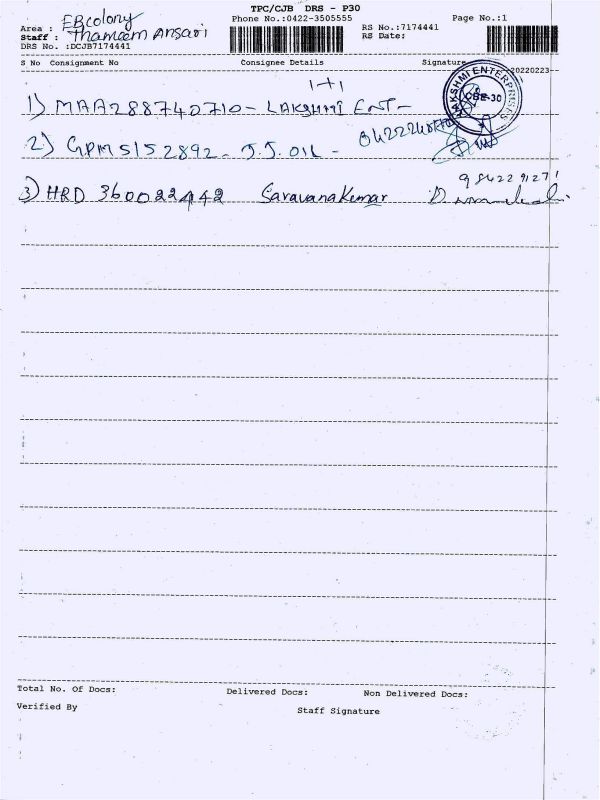 TPC/CJB DRS - P30
Area : EB colony Phone No.:0422-3505555 RS No.:7174441 Page No.:1
Staff : Thameem Ansari RS Date:
DRS No. :DCJB7174441
S No Consignment No Consignee Details Signature 20220223
1+1
1) MAA288740710 - LAKSHMI ENT -
LAKSHMI ENTERPRISES CBE-30
2) GPM5152892 - J.J. OIL -
3) HRD 360022442 Saravana Kumar
Total No. Of Docs: Delivered Docs: Non Delivered Docs:
Verified By Staff Signature